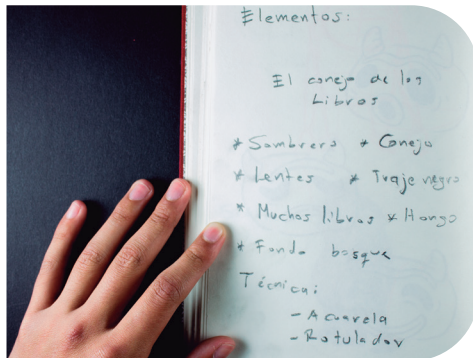 Elementos:
El conejo de los
Libros
* Sombrero * Conejo
* Lentes * Traje negro
* Muchos libros * Hongo
* Fondo bosque
Técnica:
- Acuarela
- Rotulador